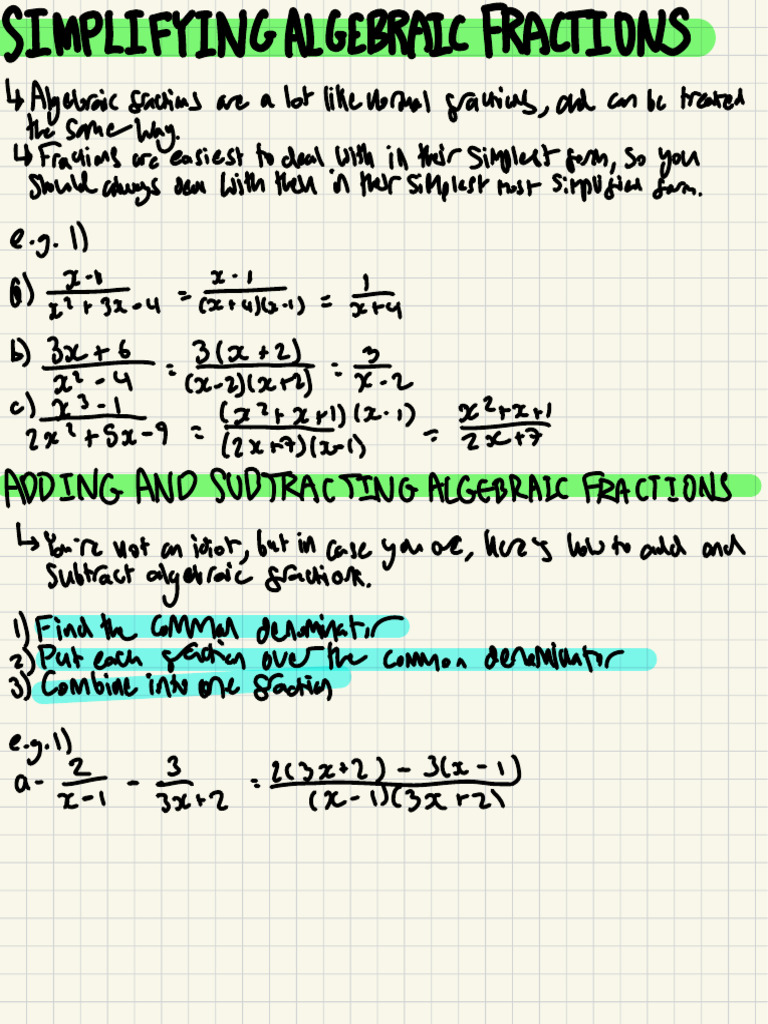 SIMPLIFYING ALGEBRAIC FRACTIONS
↳ Algebraic fractions are a lot like normal fractions, and can be treated
the same way.
↳ Fractions are easiest to deal with in their simplest form, so you
should always deal with them in their simplest most simplified form.
e.g. 1)
a) (x-1)/(x² + 3x - 4) = (x-1)/((x+4)(x-1)) = 1/(x+4)
b) (3x+6)/(x² - 4) = 3(x+2)/((x-2)(x+2)) = 3/(x-2)
c) (x³-1)/(2x² + 5x - 9) = (x²+x+1)(x-1)/((2x+7)(x-1)) = (x²+x+1)/(2x+7)
ADDING AND SUBTRACTING ALGEBRAIC FRACTIONS
↳ You're not an idiot, but in case you are, here's how to add and
subtract algebraic fractions.
1) Find the common denominator
2) Put each fraction over the common denominator
3) Combine into one fraction
e.g. 1)
a- 2/(x-1) - 3/(3x+2) = (2(3x+2) - 3(x-1))/((x-1)(3x+2))